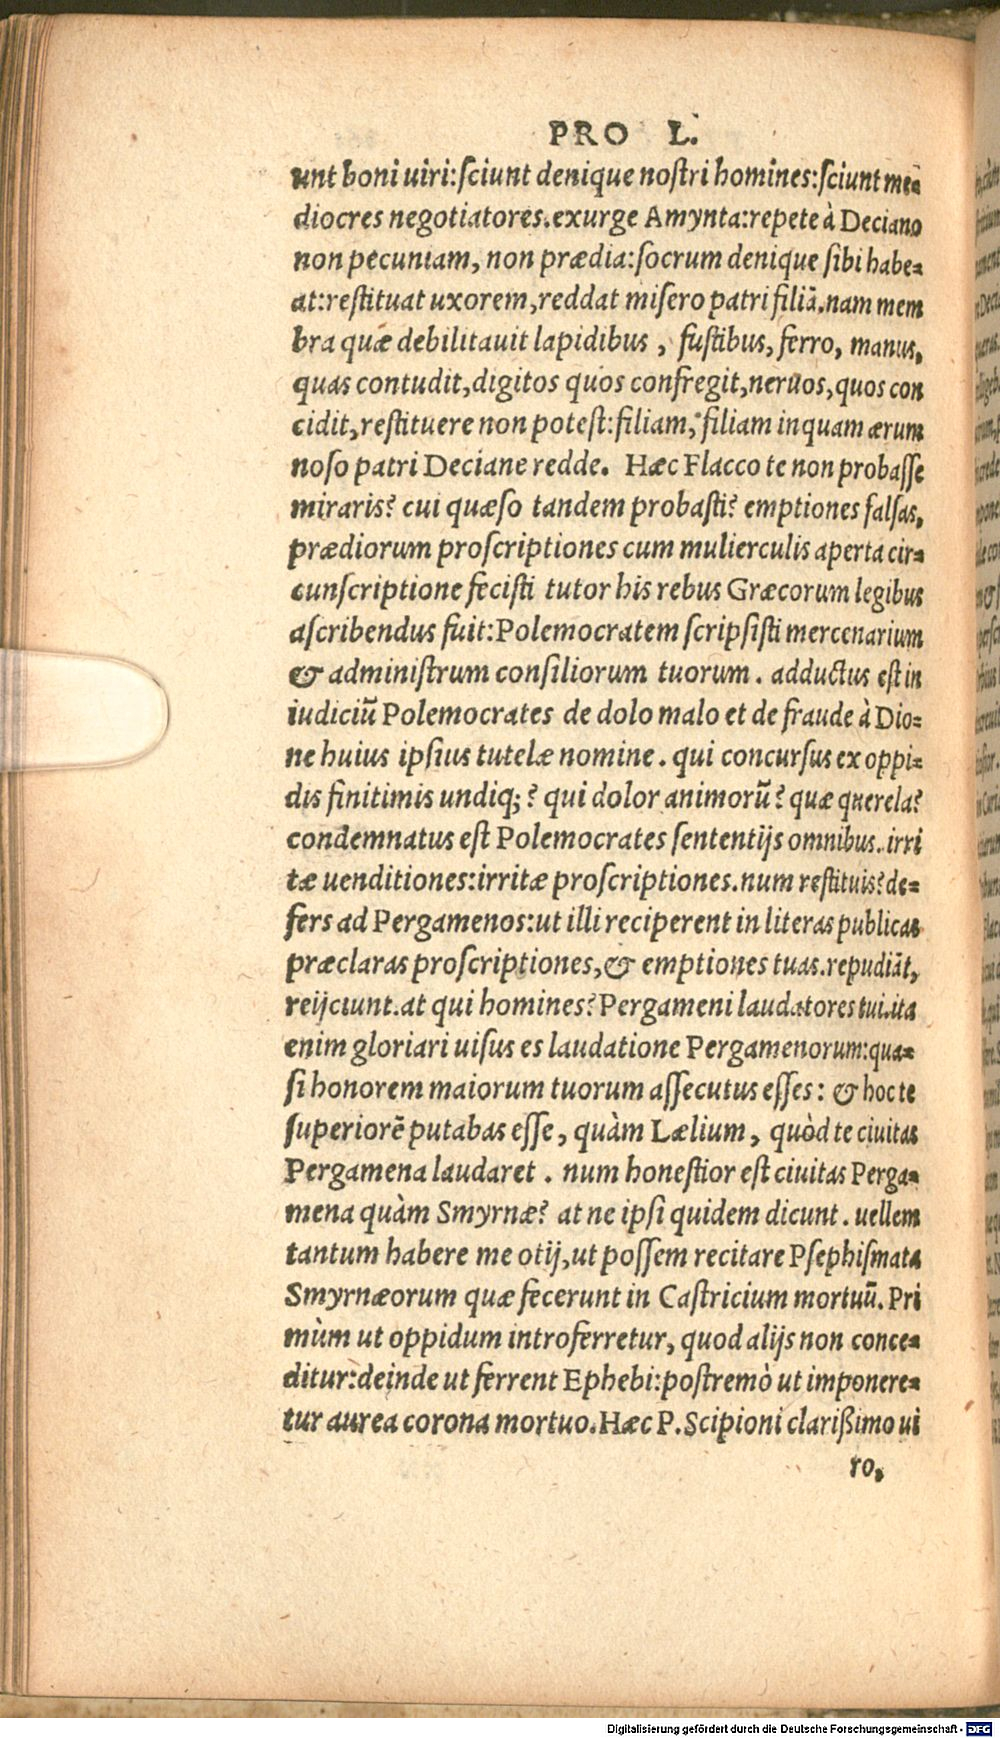 PRO L.
unt boni uiri:sciunt denique nostri homines:sciunt me-
diocres negotiatores.exurge Amynta:repete à Deciano
non pecuniam, non prædia:socrum denique sibi habe-
at:restituat uxorem,reddat misero patri filiā.nam mem
bra quæ debilitauit lapidibus , fustibus, ferro, manus,
quas contudit,digitos quos confregit,neruos,quos con
cidit,restituere non potest:filiam, filiam inquam ærum
noso patri Deciane redde. Hæc Flacco te non probasse
miraris? cui quæso tandem probasti? emptiones falsas,
prædiorum proscriptiones cum mulierculis aperta cir-
cunscriptione fecisti tutor his rebus Græcorum legibus
ascribendus fuit:Polemocratem scripsisti mercenarium
& administrum consiliorum tuorum . adductus est in
iudiciū Polemocrates de dolo malo et de fraude à Dio-
ne huius ipsius tutelæ nomine . qui concursus ex oppi-
dis finitimis undiq;? qui dolor animorū? quæ querela?
condemnatus est Polemocrates sententijs omnibus. irri
tæ uenditiones:irritæ proscriptiones.num restituis? de-
fers ad Pergamenos:ut illi reciperent in literas publicas
præclaras proscriptiones,& emptiones tuas.repudiāt,
reijciunt.at qui homines? Pergameni laudatores tui.ita
enim gloriari uisus es laudatione Pergamenorum:qua-
si honorem maiorum tuorum assecutus esses: & hoc te
superiorē putabas esse, quàm Lælium, quòd te ciuitas
Pergamena laudaret . num honestior est ciuitas Perga-
mena quàm Smyrnæ? at ne ipsi quidem dicunt . uellem
tantum habere me otij,ut possem recitare Psephismata
Smyrnæorum quæ fecerunt in Castricium mortuū. Pri
mùm ut oppidum introferretur, quod alijs non conce-
ditur:deinde ut ferrent Ephebi:postremò ut imponere-
tur aurea corona mortuo. Hæc P. Scipioni clarißimo ui
ro,
Digitalisierung gefördert durch die Deutsche Forschungsgemeinschaft - DFG